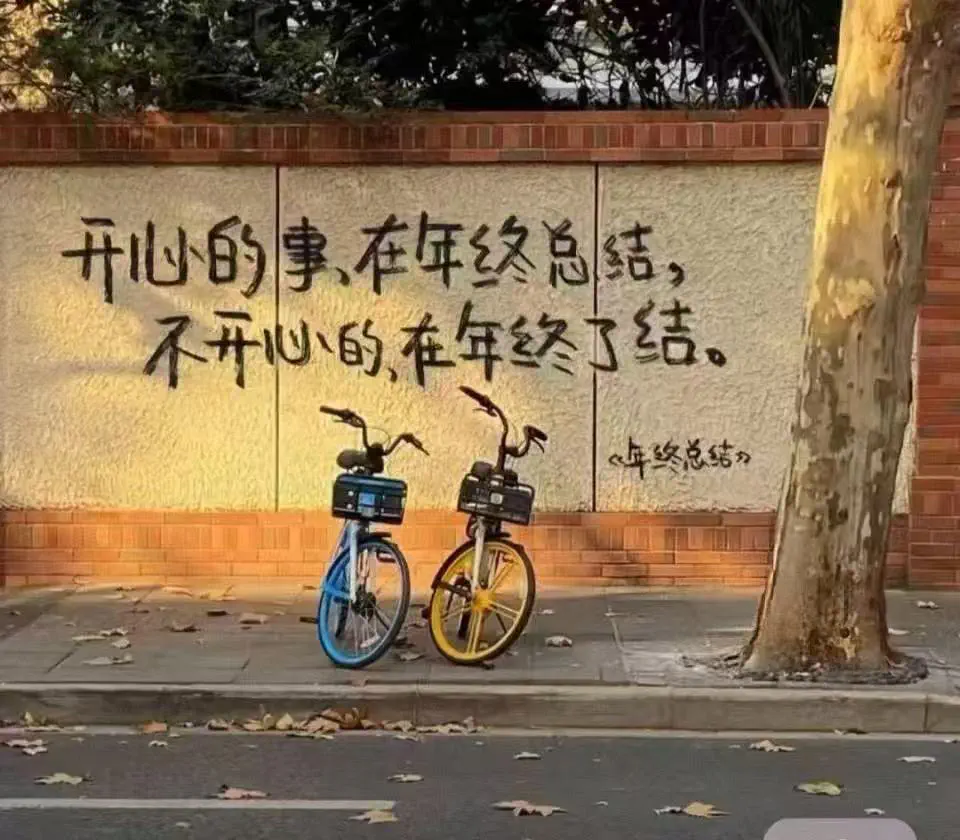 开心的事、在年终总结，
不开心的，在年终了结。
《年终总结》